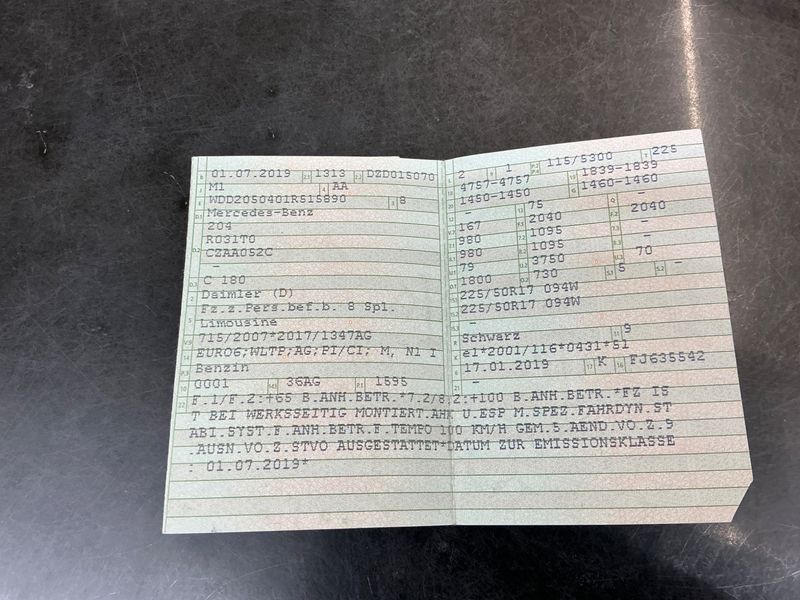 B 01.07.2019 2.1 1313 2.2 DZD015070
J M1 4 AA
E WDD2050401R515890 3 8
D.1 Mercedes-Benz
204
R031T0
D.2 CZAA052C
–
D.3 C 180
2 Daimler (D)
Fz.z.Pers.bef.b. 8 Spl.
Limousine
V.9 715/2007*2017/1347AG
14 EURO6;WLTP;AG;PI/CI; M, N1 I
P.3 Benzin
10 0001 14.1 36AG P.1 1595
L 2 9 1 P.2 P.4 115/5300 T 225
18 4757-4757 19 1839-1839
20 1450-1450 G 1460-1460
12 – 13 75 Q –
V.7 167 F.1 2040 F.2 2040
7.1 980 7.2 1095 7.3 –
8.1 980 8.2 1095 8.3 –
U.1 79 U.2 3750 U.3 70
O.1 1800 O.2 730 S.1 5 S.2 –
15.1 225/50R17 094W
15.2 225/50R17 094W
15.3 –
R Schwarz 11 9
K e1*2001/116*0431*51
6 17.01.2019 17 K 16 FJ635542
21 –
22 F.1/F.2:+65 B.ANH.BETR.*7.2/8.2:+100 B.ANH.BETR.*FZ IS
T BEI WERKSSEITIG MONTIERT.AHK U.ESP M.SPEZ.FAHRDYN.ST
ABI.SYST.F.ANH.BETR.F.TEMPO 100 KM/H GEM.5.AEND.VO.Z.9
.AUSN.VO.Z.STVO AUSGESTATTET*DATUM ZUR EMISSIONSKLASSE
: 01.07.2019*